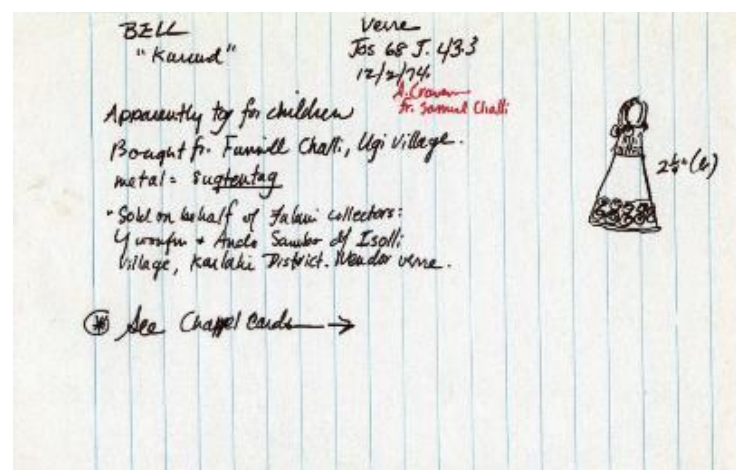 BELL
"Karurd"
Verre
Jos 68 J. 433
12/2/74
A. Craven
fr. Samuel Challi
Apparently toy for children
Bought fr. Funnill Challi, Ugi Village.
metal =
2 1/4" (h)
"Sold on behalf of Fulani collectors:
+ Ando Sambo of Isolli
Village, Karlahi District. Vendor Verre.
* See Chappel Cards →